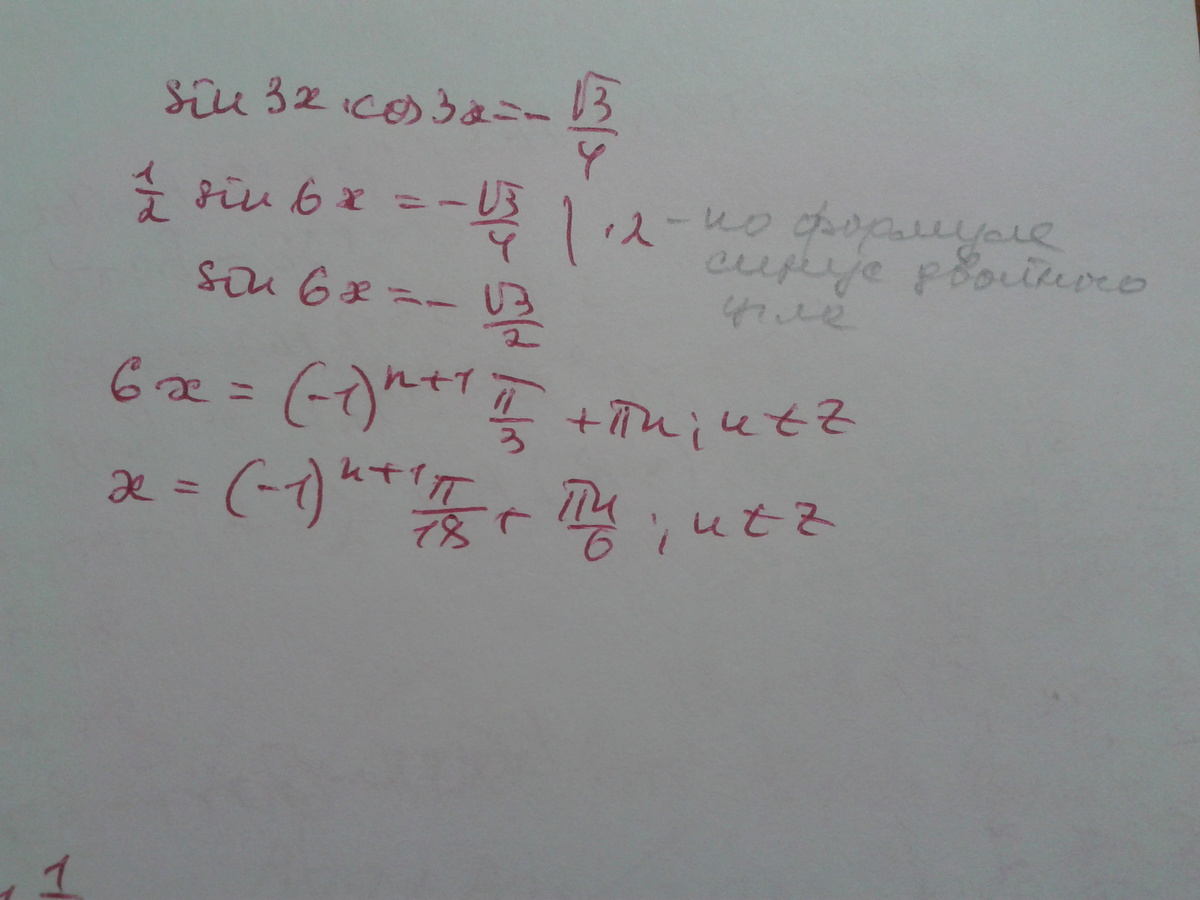 sin 3x · cos 3x = - √3/4
1/2 sin 6x = - √3/4 | · 2 - по формуле
синус двойного
угла
sin 6x = - √3/2
6x = (-1)^{n+1} π/3 + πn; n ∈ Z
x = (-1)^{n+1} π/18 + πn/6; n ∈ Z
1